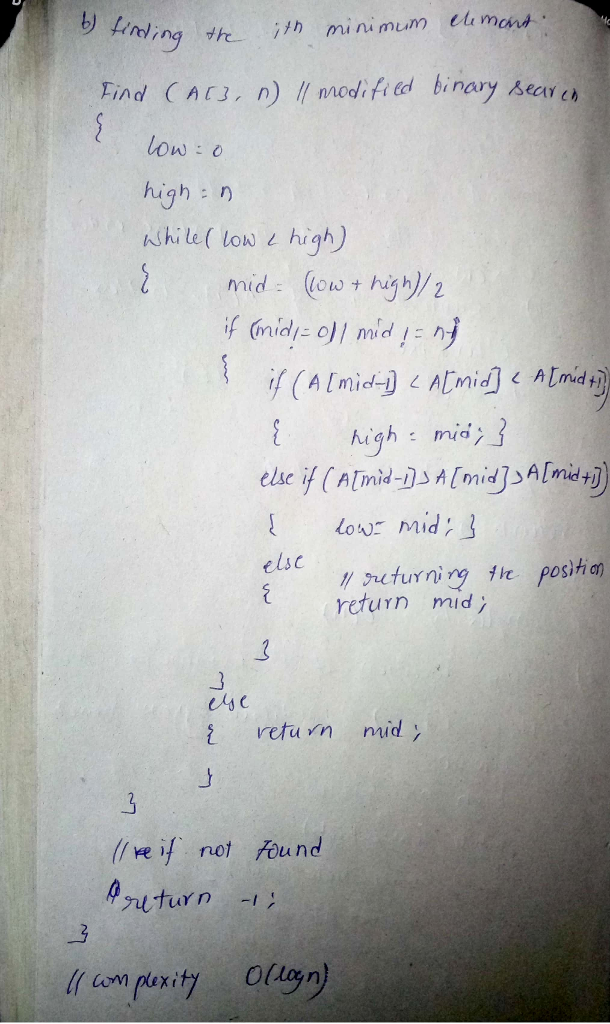 b) finding the ith minimum element:
Find (A[], n) // modified binary search
{
low = 0
high = n
while( low < high)
{ mid = (low + high)/2
if (mid != 0 || mid != n-1
{ if (A[mid-1] < A[mid] < A[mid+1])
{ high = mid; }
else if (A[mid-1]>A[mid]>A[mid+1])
{ low= mid; }
else
{ // returning the position
return mid;
}
}
else
{ return mid;
}
}
// if not found
return -1;
}
// complexity O(logn)